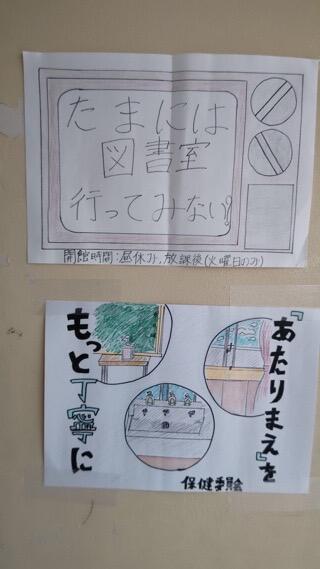 たまには
図書室
行ってみない?
開館時間:昼休み,放課後(火曜日のみ)
『あたりまえ』を
もっと丁寧に
保健委員会